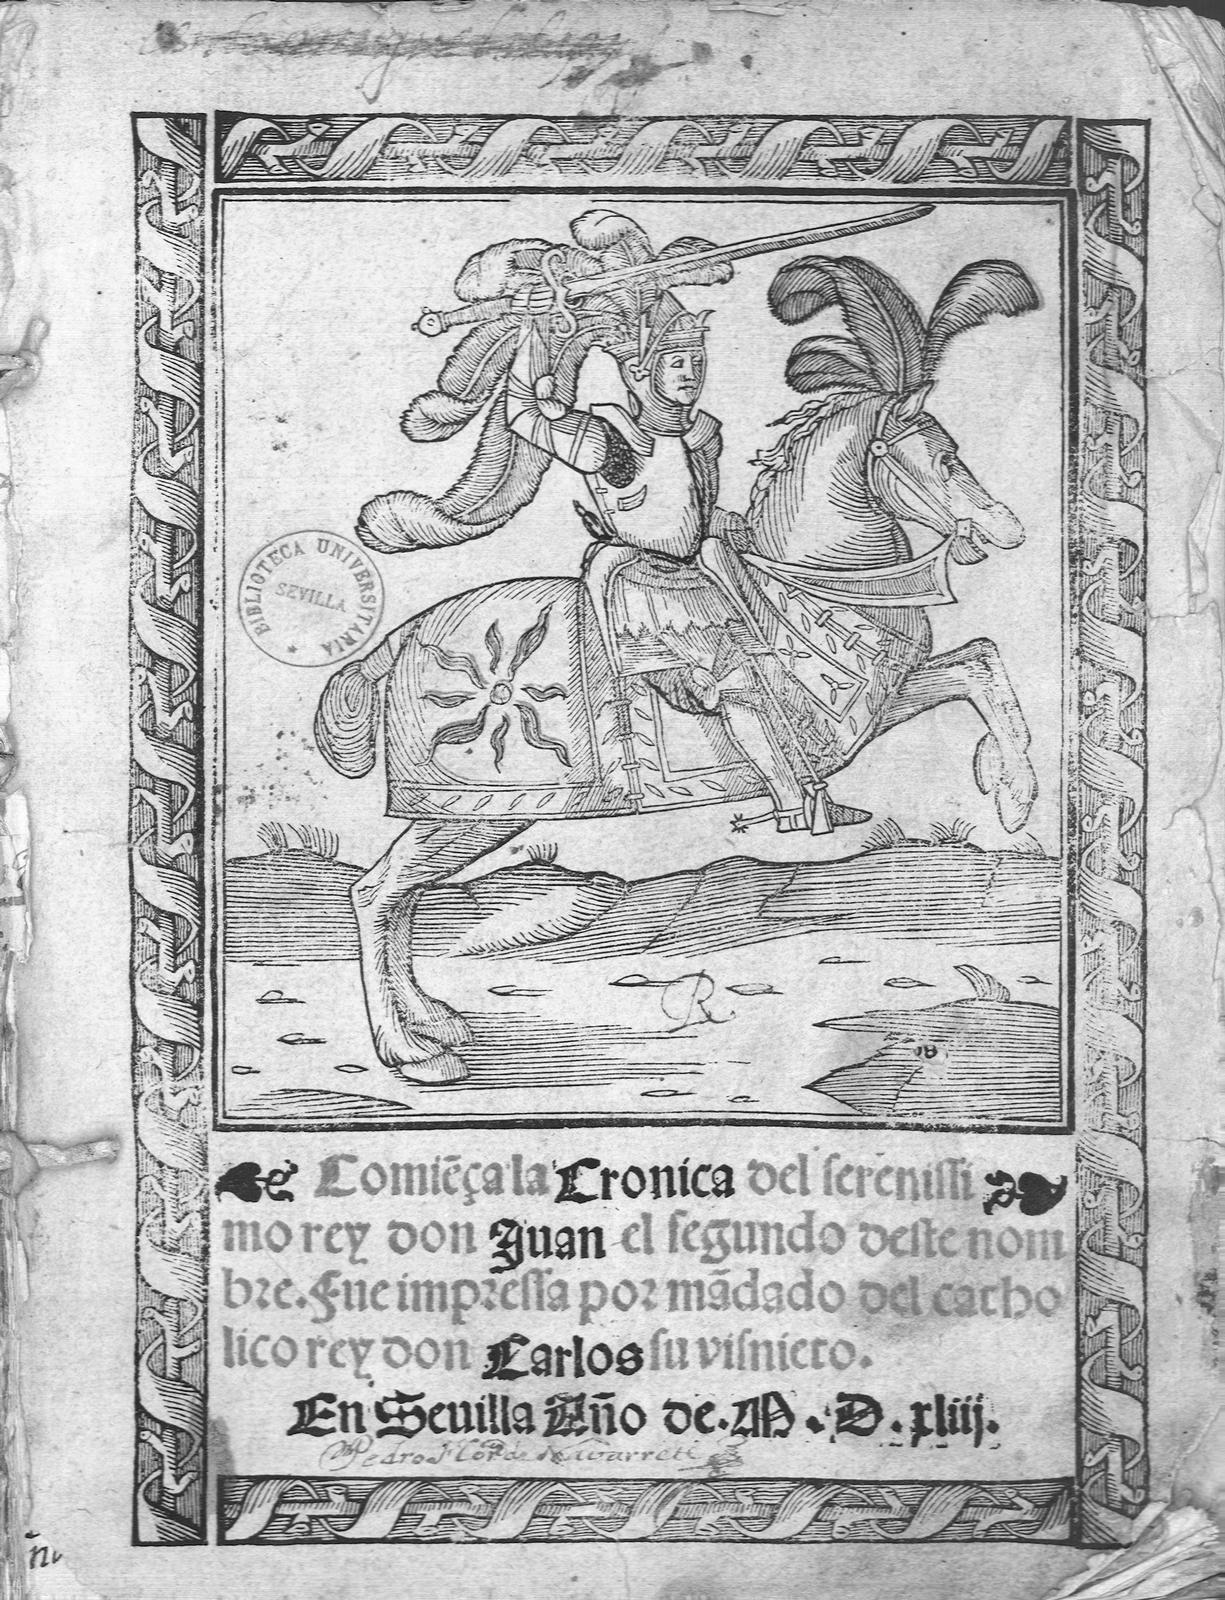 BIBLIOTECA UNIVERSITARIA
SEVILLA
R
Comiẽça la Cronica del sereniſſi
mo rey don Juan el segundo deste nom
bre. Fue impreſſa por mãdado del catho
lico rey don Carlos su visnieto.
En Sevilla Año de. M. D. xliij.
Pedro